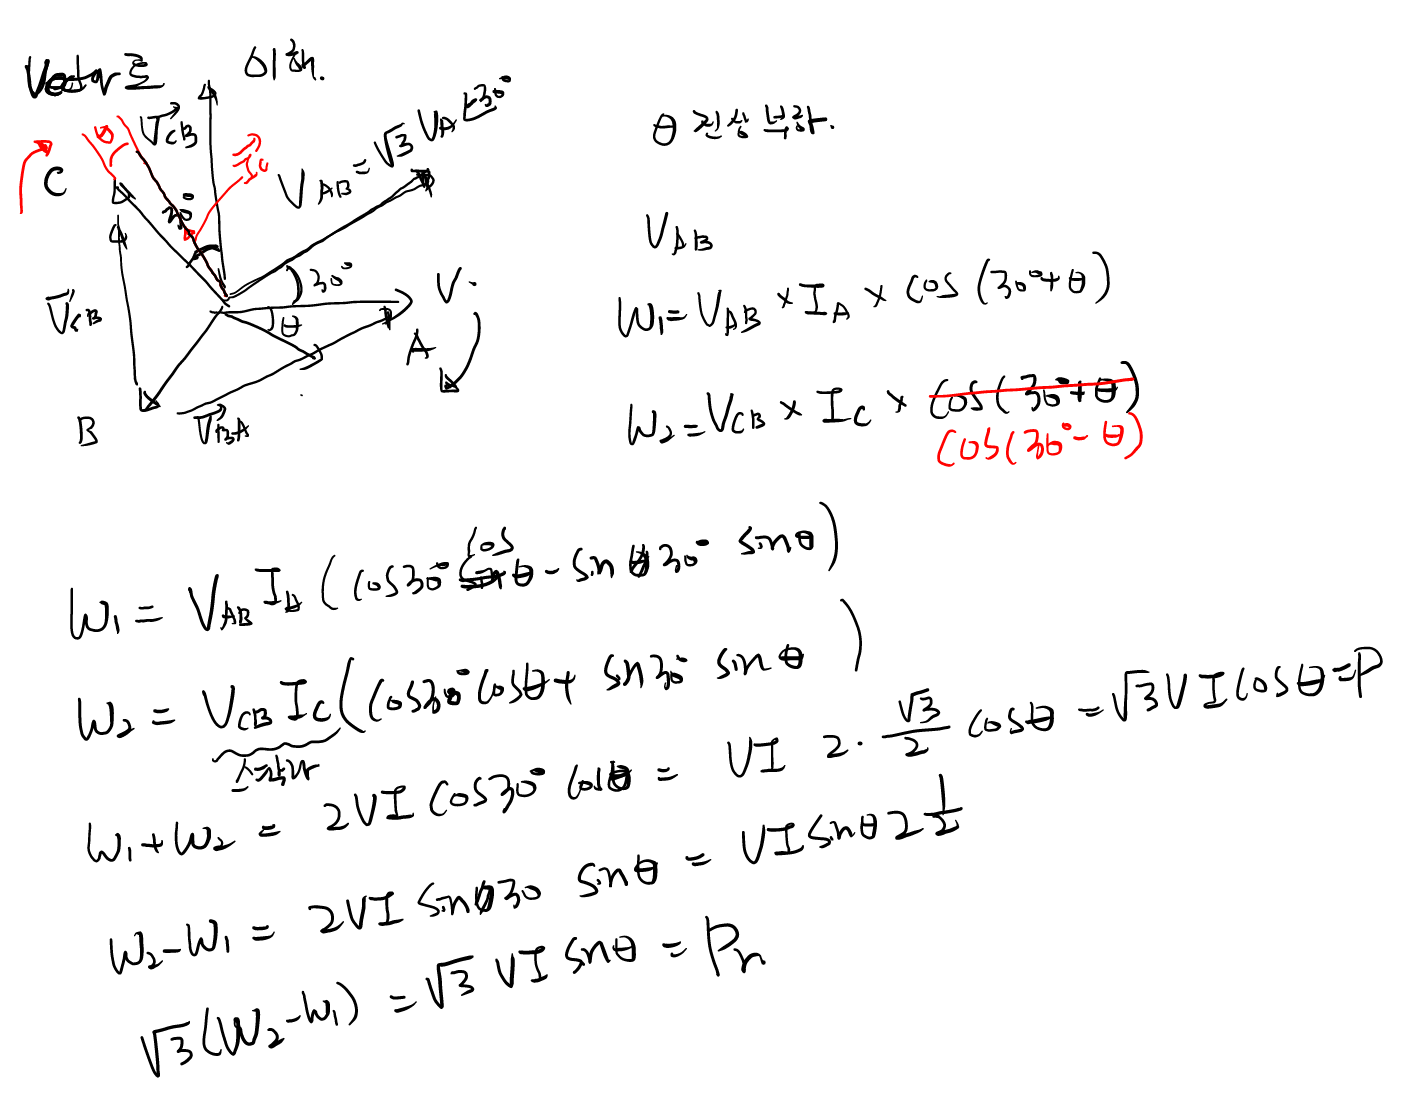 Vector로 이해.
θ V⃗CB
I⃗C
VAB = √3 VA∠30°
C
30°
V⃗CB
30°
V.
θ
A
B
V⃗BA
θ 진상 부하.
VAB
W₁ = VAB × IA × cos (30° + θ)
W₂ = VCB × IC × cos (30° + θ)
cos (30° - θ)
W₁ = VAB IA ( cos30° cos θ - sin 30° sinθ )
W₂ = VCB IC ( cos30° cosθ + sin30° sin θ )
스칼라
W₁ + W₂ = 2VI cos30° cosθ = VI 2 · √3/2 cosθ = √3 VI cosθ = P
W₂ - W₁ = 2VI sin30 sinθ = VI sinθ 2 1/2
√3 (W₂ - W₁) = √3 VI sinθ = Pr